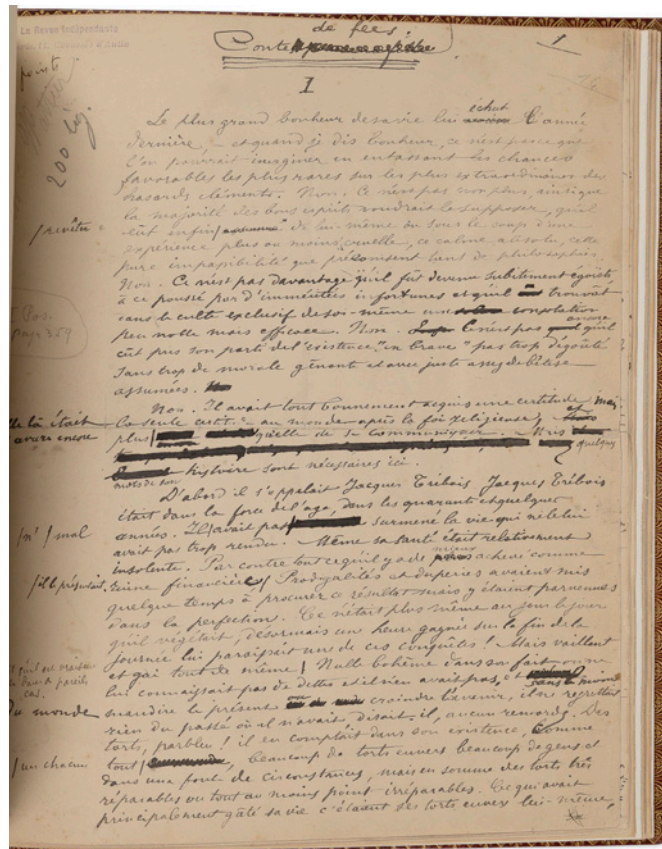 La Revue Indépendante
de fées
Conte
1
I
200 lig.
Le plus grand bonheur de sa vie lui échut l'année
dernière, — et quand je dis bonheur, ce n'est pas ce que
l'on pourrait imaginer en entassant les chances
favorables les plus rares sur les plus extraordinaires des
hasards cléments. Non. Ce n'est pas non plus, ainsi que
la majorité des bons esprits voudrait le supposer, qu'il
eût enfin / revêtu de lui-même ou sous le coup d'une
expérience plus ou moins cruelle, ce calme absolu, cette
pure impassibilité que préconisent tant de philosophies.
Non. Ce n'est pas davantage qu'il fût devenu subitement égoïste
à ce poussé par d'imméritées infortunes et qu'il trouvât
dans le culte exclusif de soi-même une consolation
peu noble mais efficace. Non. Ce n'est pas encore qu'il
eût pris son parti de l'existence "en brave" pas trop dégoûté
sans trop de morale gênante et avec juste assez de bêtise
assumée.
Non. Il avait tout bonnement acquis une certitude, mais
la seule certit. au monde après la foi religieuse, et
plus qu'elle de se communiquer. Mais
quelques
mots de son histoire sont nécessaires ici.
D'abord il s'appelait Jacques Trébois. Jacques Trébois
était dans la force de l'âge, dans les quarante et quelques
années. Il / n' / avait pas / mal / surmené la vie qui ne le lui
avait pas trop rendu. Même sa santé était relativement
insolente. Par contre tout ce qu'il y a de mieux achevé comme
ruine financière / il la présentait. Prodigalités et duperies avaient mis
quelque temps à procurer ce résultat mais y étaient parvenues
dans la perfection. Ce n'était plus même au jour le jour
qu'il végétait, désormais une heure gagnée sur la fin de la
journée lui paraissait une de ces conquêtes! Mais vaillant
et gai tout de même / Nulle bohème dans son fait on ne
lui connaissait pas de dettes et il n'en avait pas, et sans le moins
du monde maudire le présent craindre l'avenir, il ne regrettait
rien du passé où il n'avait, disait-il, aucun remords. Des
torts, parbleu! il en comptait dans son existence, comme
tout / un chacun, beaucoup de torts envers beaucoup de gens et
dans une foule de circonstances, mais en somme des torts très
réparables ou tout au moins point irréparables. Ce qui avait
principalement gâté sa vie c'étaient ses torts envers lui-même,